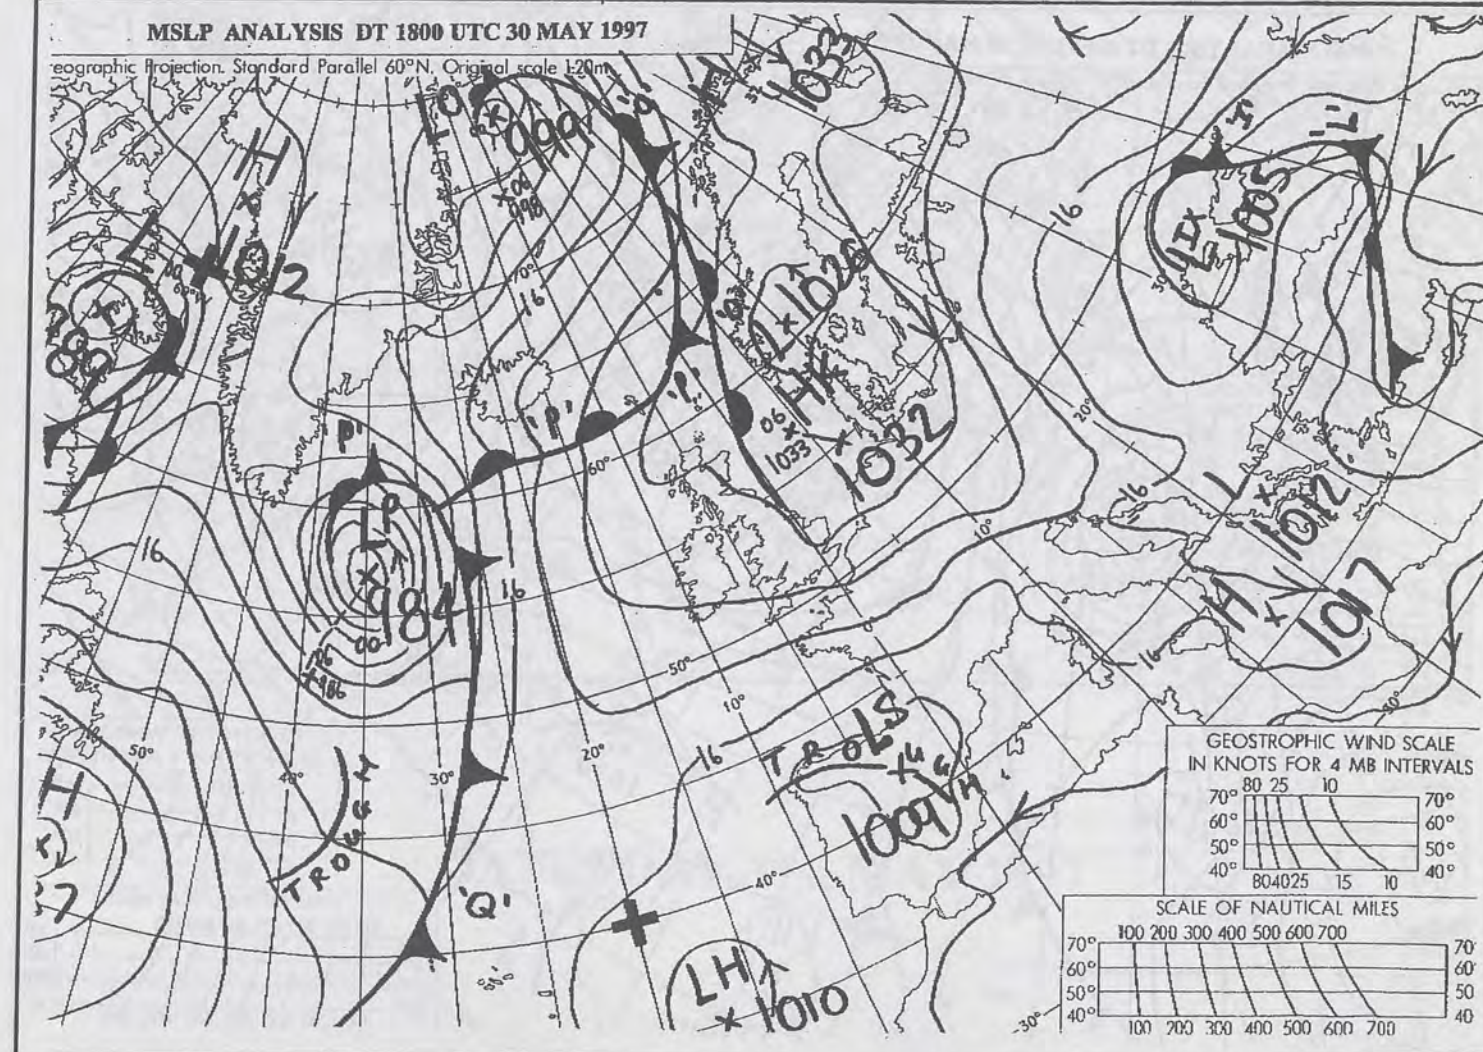 MSLP ANALYSIS DT 1800 UTC 30 MAY 1997
eographic Projection. Standard Parallel 60°N. Original scale 1:20m
LO
999
'O'
06
998
1033
H
1012
L
'I'
'L'
LIX
1005
16
30°
70°
16
L
1026
HK
06
1033
1032
'P'
'P'
'P'
60°
20°
16
10°
L
1012
H
1017
16
LP
984
00
06
986
16
16
50°
0°
10°
20°
30°
40°
50°
TROUGH
H
'Q'
16
TROUGH
LS
1009
40°
LH
1010
30°
GEOSTROPHIC WIND SCALE
IN KNOTS FOR 4 MB INTERVALS
80 25 10
70° 70°
60° 60°
50° 50°
40° 40°
80 40 25 15 10
SCALE OF NAUTICAL MILES
100 200 300 400 500 600 700
70° 70°
60° 60°
50° 50
40° 40
100 200 300 400 500 600 700